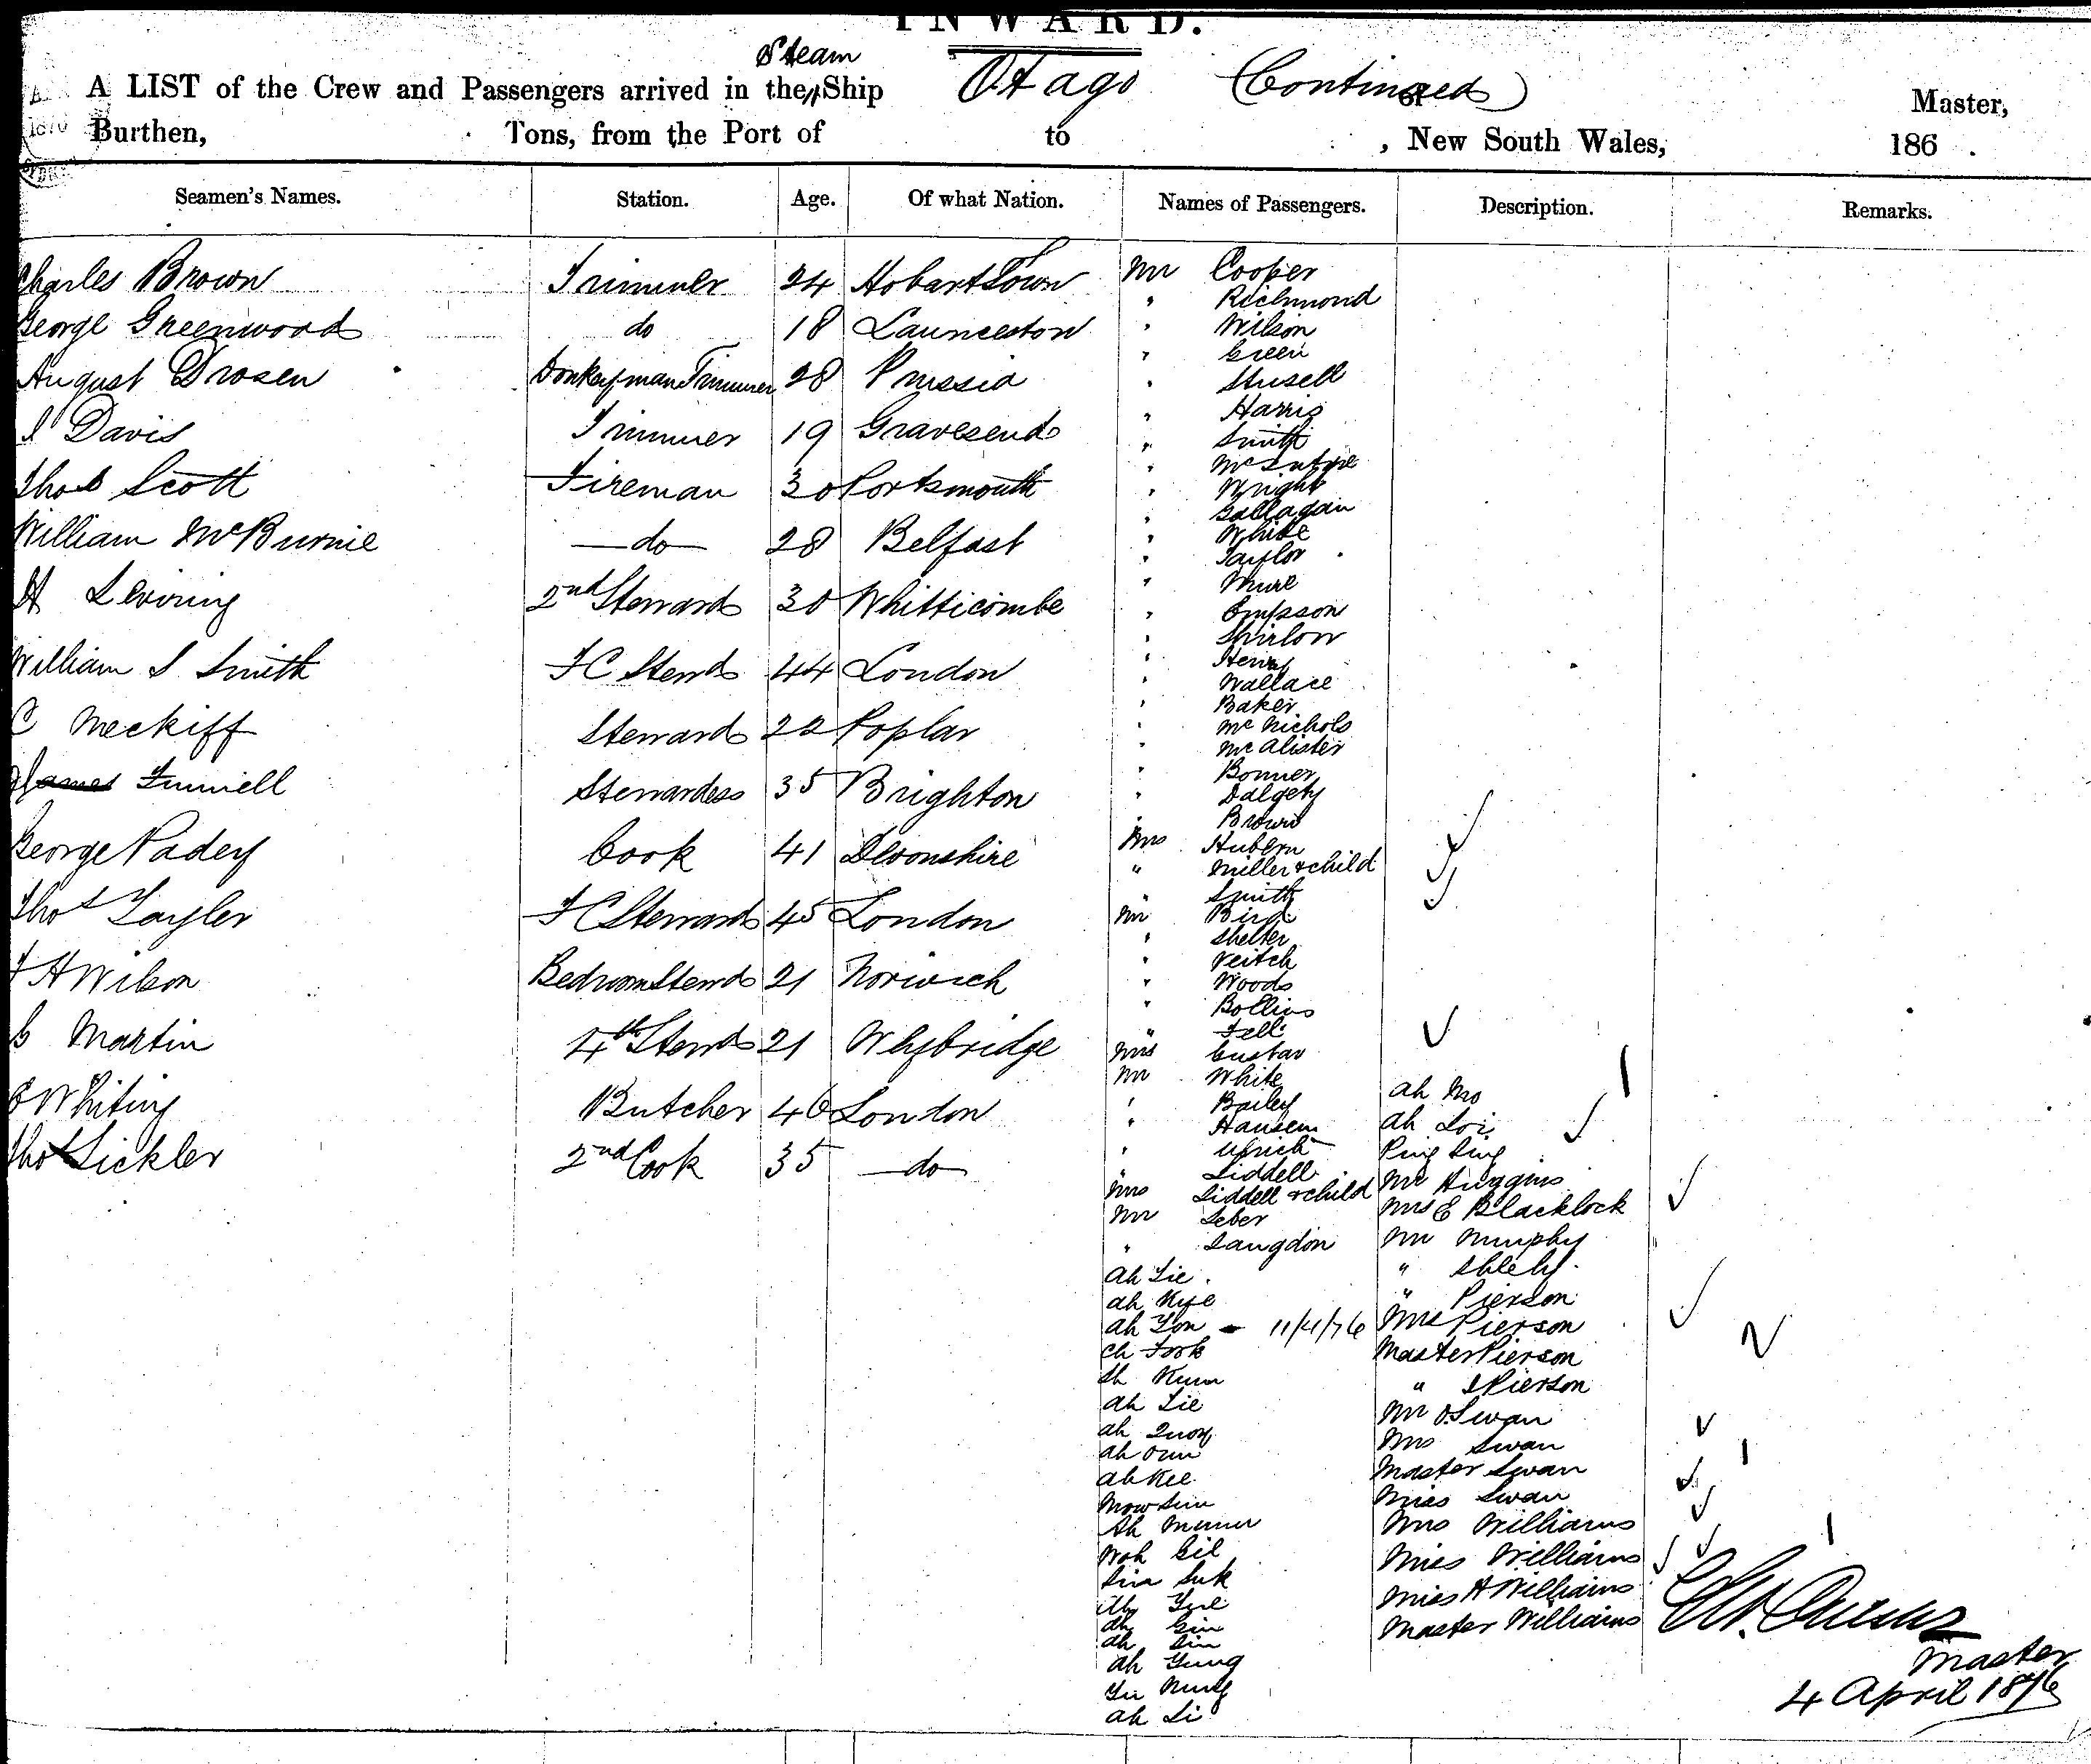 INWARD.
Steam
A LIST of the Crew and Passengers arrived in the Ship Otago (Continued) of Master,
Burthen, Tons, from the Port of to , New South Wales, 186 .
Seamen's Names. Station. Age. Of what Nation. Names of Passengers. Description. Remarks.
Charles Brown Trimmer 24 Hobart Town
George Greenwood do 18 Launceston
August Drosen Donkeyman Trimmer 28 Prussia
Davis Trimmer 19 Gravesend
Thos Scott Fireman 30 Portsmouth
William McBurnie do 28 Belfast
H 2nd Steward 30 Whitticombe
William S Smith FC Stewd 44 London
C Meckiff Steward 22 Poplar
James Funnell Stewardess 35 Brighton
George Padey Cook 41 Devonshire
Thos Tayler FC Steward 45 London
F H Wilson Bedroom Stewd 21 Norwich
Martin 4th Stewd 21 Whybridge
Whiting Butcher 46 London
Thos Sickler 2nd Cook 35 do
Mr Cooper
" Richmond
" Wilson
" Green
"
" Harris
" Smith
" McIntyre
" Wright
" Gallagan
" White
" Taylor
" Muir
" Empsson
" Shirlow
" Henry
" Wallace
" Baker
" McNichols
" McAlister
" Bonner
" Dalgety
" Brown
Mrs Hubern
" Miller & child
" Smith
Mr Bird
" Shelter
" Veitch
" Woods
" Bollins
" Fell
Mrs Gustav
Mr White
" Bailey
" Hansen
" Ulrich
" Liddell
Mrs Liddell & child
Mr Leber
" Langdon
Ah Lie
Ah Kye
Ah Yon - 11/4/76
Ch Fook
Ah Kum
Ah Lie
Ah Quoy
Ah Oun
Ah Kee
Mow Sin
Ah
Wah Gil
Sin Suk
Yee
Ah Gin
Ah Sin
Ah Yung
Yu Mung
Ah Li
Ah Mo
Ah Loi
Ping Sing
Mr Higgins
Mrs E Blacklock
Mr Murphy
" Sheehy
" Pierson
Mrs Pierson
Master Pierson
" Pierson
Mr O. Swan
Mrs Swan
Master Swan
Miss Swan
Mrs Williams
Miss Williams
Miss H Williams
Master Williams
Master
4 April 1876